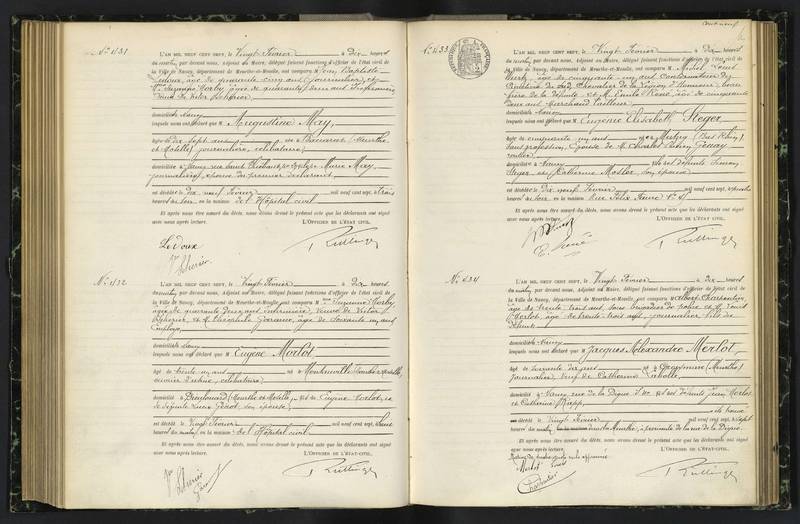 N° 431
L'AN MIL NEUF CENT SEPT, le Vingt Février à Dix heures
du matin, par devant nous, Adjoint au Maire, délégué faisant fonctions d'officier de l'état civil de
la Ville de Nancy, département de Meurthe-et-Moselle, ont comparu M Jean Baptiste
Ledoux, âgé de quarante cinq ans, journalier, et
Mme Suzanne Corby, âgée de quarante deux ans, infirmière,
veuve de Victor
domiciliés à Nancy
lesquels nous ont déclaré que M Augustine May,
âgée de dix sept ans née à Baccarat (Meurthe
et Moselle) journalière, célibataire,
domiciliée à Nancy, rue Marie May,
journalière, épouse du premier déclarant
est décédée le dix neuf Février mil neuf cent sept, à trois
heures du soir, en la maison de l'Hôpital civil
Et après nous être assuré du décès, nous avons dressé le présent acte que les déclarants ont signé
avec nous après lecture. L'OFFICIER DE L'ÉTAT CIVIL,
Ledoux
N° 432
L'AN MIL NEUF CENT SEPT, le Vingt Février à Dix heures
du matin, par devant nous, Adjoint au Maire, délégué faisant fonctions d'officier de l'état civil de
la Ville de Nancy, département de Meurthe-et-Moselle, ont comparu Mme Suzanne Corby,
âgée de quarante deux ans, infirmière, veuve de Victor
et M. Théophile âgé de soixante un ans
Employé
domiciliés à Nancy
lesquels nous ont déclaré que M Eugène Morlot,
âgé de trente un ans né à
ouvrier d'usine, célibataire,
domicilié à (Meurthe et Moselle), fils de Eugène Morlot et
de son épouse
est décédé le Vingt Février mil neuf cent sept, à une
heure du matin, en la maison de l'Hôpital civil
Et après nous être assuré du décès, nous avons dressé le présent acte que les déclarants ont signé
avec nous après lecture. L'OFFICIER DE L'ÉTAT CIVIL,
N° 433
L'AN MIL NEUF CENT SEPT, le Vingt Février à Dix heures
du matin, par devant nous, Adjoint au Maire, délégué faisant fonctions d'officier de l'état civil de
la Ville de Nancy, département de Meurthe-et-Moselle, ont comparu M. Michel Louis
âgé de cinquante un ans, Conservateur des
Chevalier de la Légion d'Honneur, beau
frère de la défunte et M. Emile René, âgé de cinquante
deux ans Marchand Tailleur,
domiciliés à Nancy
lesquels nous ont déclaré que M Eugénie Elisabeth Steger,
âgée de cinquante un ans née à Mutzig (Bas Rhin)
Sans profession, Epouse de M. Charles
domiciliée à Nancy
Steger et Catherine Mosler, son épouse
est décédée le Dix neuf Février mil neuf cent sept, à
heures du soir, en la maison Rue Félix Faure N°
Et après nous être assuré du décès, nous avons dressé le présent acte que les déclarants ont signé
avec nous après lecture. L'OFFICIER DE L'ÉTAT CIVIL,
E. René
N° 434
L'AN MIL NEUF CENT SEPT, le Vingt Février à Dix heures
du matin, par devant nous, Adjoint au Maire, délégué faisant fonctions d'officier de l'état civil de
la Ville de Nancy, département de Meurthe-et-Moselle, ont comparu M Albert Charpentier,
âgé de trente trois ans, sous brigadier de police et M. Louis
Merlot, âgé de trente trois ans, journalier fils du
défunt
domiciliés à Nancy
lesquels nous ont déclaré que M Jacques Alexandre Merlot,
âgé de soixante dix ans né à (Meurthe)
journalier, veuf de Catherine
domicilié à Nancy, rue de la Digue fils des défunts Jean Merlot
et Catherine
a été trouvé
est décédé le Vingt Février mil neuf cent sept, à sept
heures du matin, dans la Meurthe, à proximité de la rue de la Digue
Et après nous être assuré du décès, nous avons dressé le présent acte que les déclarants ont signé
avec nous après lecture. L'OFFICIER DE L'ÉTAT CIVIL,
Merlot Louis
Charpentier